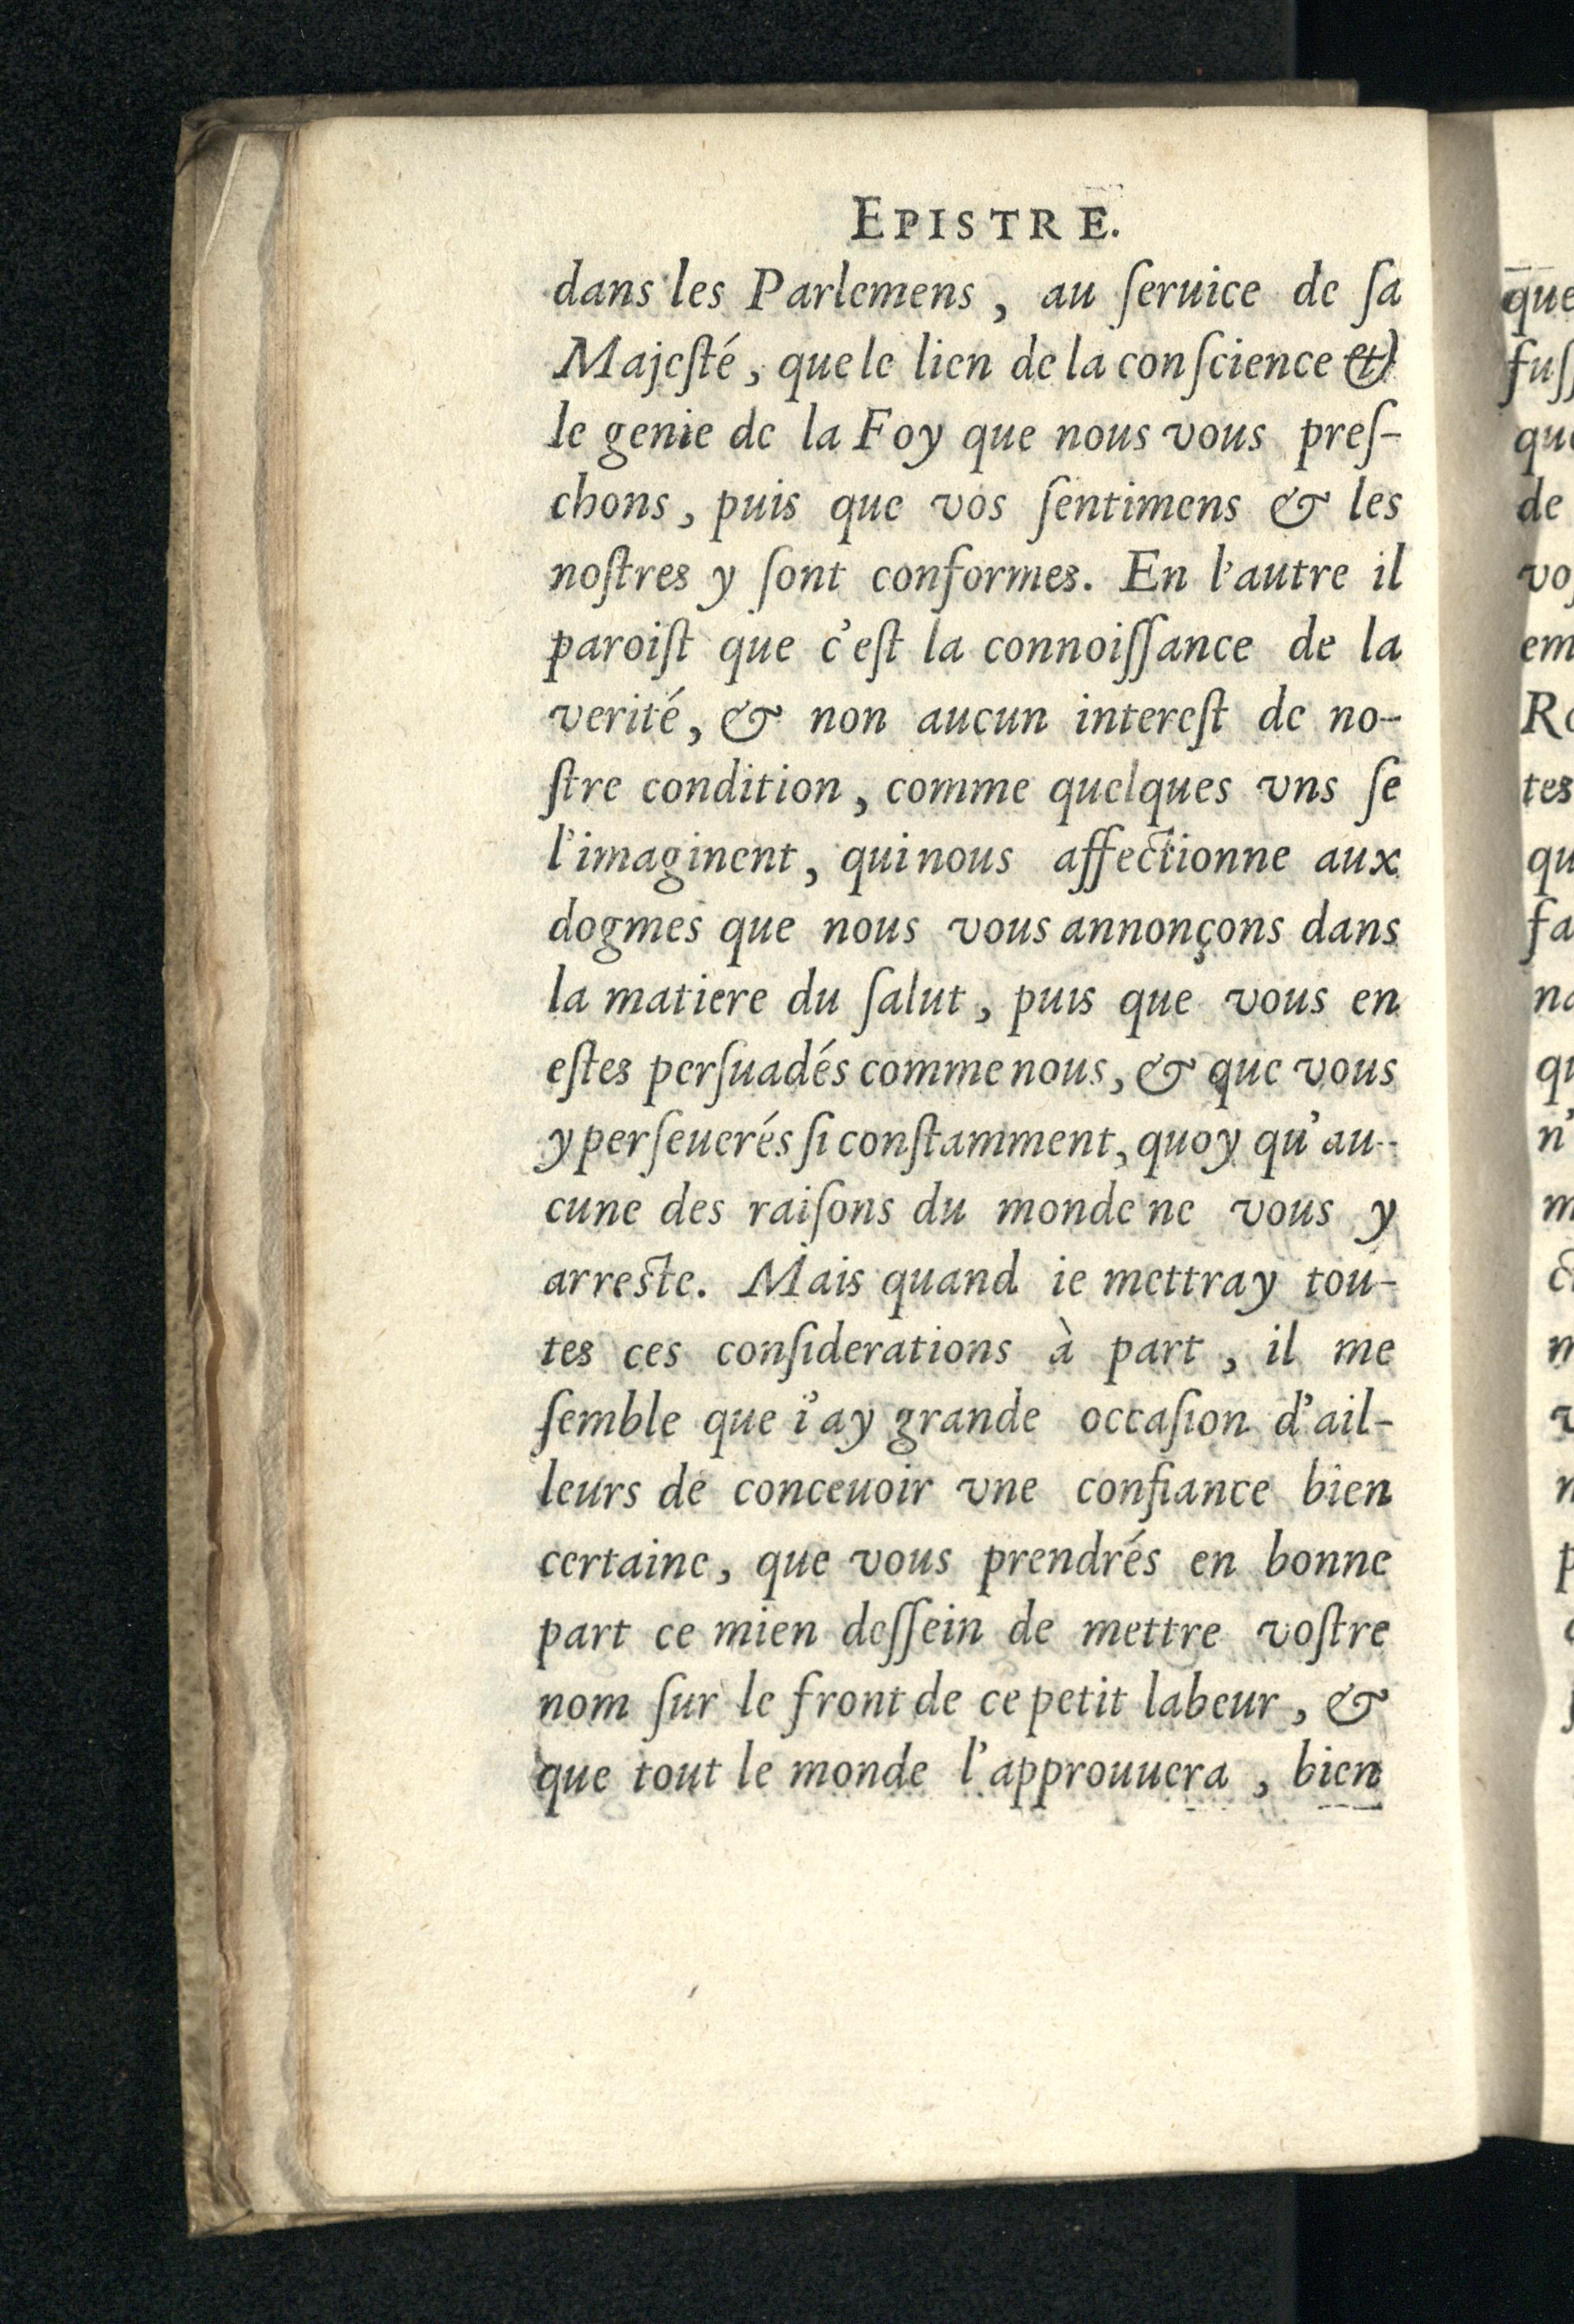 EPISTRE.
dans les Parlemens, au ſeruice de ſa
Majeſté, que le lien de la conſcience &
le genie de la Foy que nous vous preſ-
chons, puis que vos ſentimens & les
noſtres y ſont conformes. En l'autre il
paroiſt que c'eſt la connoiſſance de la
verité, & non aucun intereſt de no-
ſtre condition, comme quelques vns ſe
l'imaginent, qui nous affectionne aux
dogmes que nous vous annonçons dans
la matiere du ſalut, puis que vous en
eſtes perſuadés comme nous, & que vous
y perſeuerés ſi conſtamment, quoy qu'au-
cune des raiſons du monde ne vous y
arreſte. Mais quand ie mettray tou-
tes ces conſiderations à part, il me
ſemble que i'ay grande occaſion d'ail-
leurs de conceuoir vne confiance bien
certaine, que vous prendrés en bonne
part ce mien deſſein de mettre voſtre
nom ſur le front de ce petit labeur, &
que tout le monde l'approuuera, bien
que
fuſſ
que
de
voſ
em
Ro
tes
qu
fa
no
qu
n'
m
ct